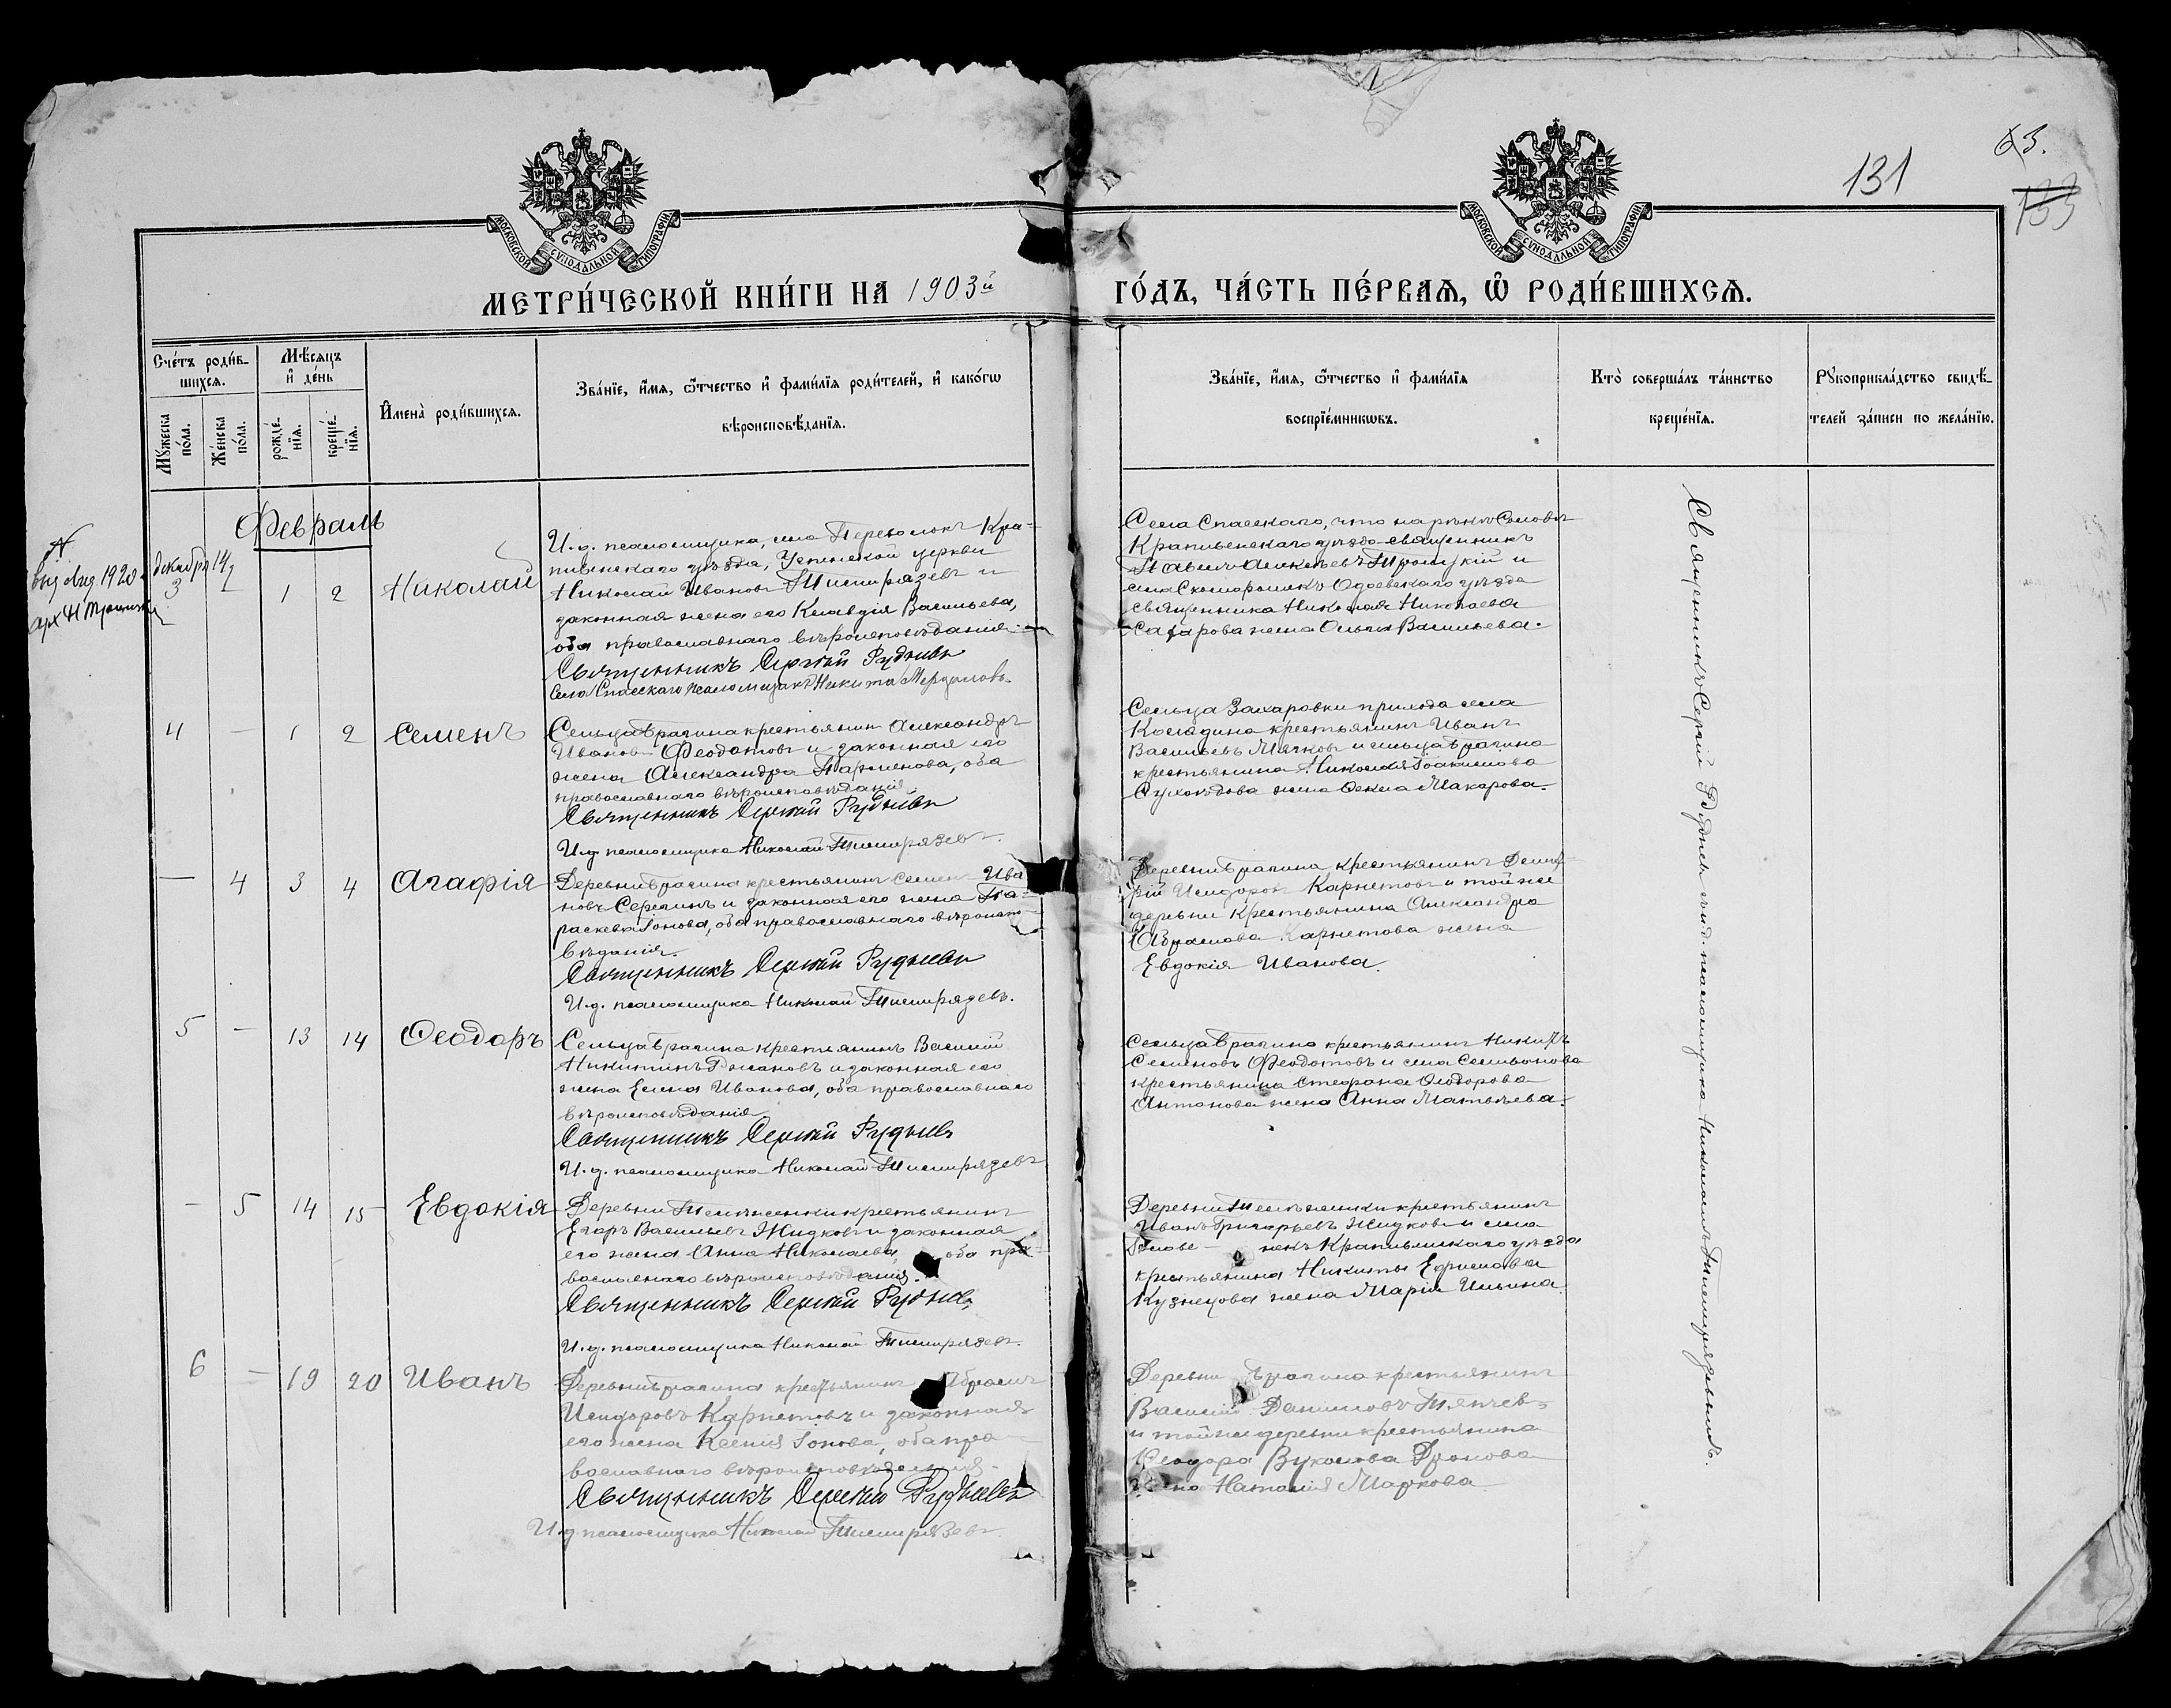 131
63.
133
МОСКОВСКОЙ СУНОДАЛЬНОЙ ТИПОГРАФІИ
МОСКОВСКОЙ СУНОДАЛЬНОЙ ТИПОГРАФІИ
МЕТРИ́ЧЕСКОЙ КНИ́ГИ НА 1903й ГО́ДЪ, ЧА́СТЬ ПЕ́РВАѦ, Ѡ РОДИ́ВШИХСѦ.
Сче́тъ роди́в-
шихсѧ.
Мꙋ́жеска
по́ла.
Же́нска
по́ла.
Мѣ́сѧцъ
и де́нь
рожде́-
нїѧ.
креще́-
нїѧ.
Имена̀ роди́вшихсѧ.
Зва́нїе, и́мѧ, ѻ́тчество и фами́лїѧ роди́телей, и како́гѡ
вѣроисповѣ́данїѧ.
Зва́нїе, и́мѧ, ѻ́тчество и фами́лїѧ
воспрїе́мникѡвъ.
Кто̀ соверша́лъ та́инство
креще́нїѧ.
Рꙋкоприкла́дство свидѣ́-
телей за́писи по жела́нїю.
Февраль
декабря 14
1920
3 – 1 2 Николай
И. д. псаломщика, села Переволокъ Кра-
пивенскаго уѣзда, Успенской церкви
Николай Ивановъ Тисмирязевъ и
законная жена его Клавдія Васильева,
оба православнаго вѣроисповѣданія.
Священникъ Сергій Рудневъ
Села Спасскаго псаломщикъ Никита Мерцаловъ.
Села Спасскаго, что на рѣкѣ Солов
Крапивенскаго уѣзда священникъ
Павелъ Алексѣевъ Троицкій и
села Скоморошекъ Одоевскаго уѣзда
священника Николая Николаева
Сахарова жена Ольга Васильева.
4 – 1 2 Семенъ
Сельца Брагина крестьянинъ Александръ
Ивановъ Феодотовъ и законная его
жена Александра Парменова, оба
православнаго вѣроисповѣданія.
Священникъ Сергій Рудневъ
И. д. псаломщика Николай Тисмирязевъ.
Сельца Захаровки прихода села
крестьянинъ Иванъ
Васильевъ Мячковъ и сельца Брагина
крестьянина Николая Іоакимова
жена Ѳекла Макарова.
– 4 3 4 Агафія
Деревни Брагина крестьянинъ Семенъ Ива-
новъ Серегинъ и законная его жена Па-
раскева Іонова, оба православнаго вѣроиспо-
вѣданія.
Священникъ Сергій Рудневъ
И. д. псаломщика Николай Тисмирязевъ.
Деревни Брагина крестьянинъ Димит-
рій Исидоровъ Карпетовъ и той же
деревни крестьянина Александра
Абрамова Карпетова жена
Евдокія Иванова.
5 – 13 14 Ѳеодоръ
Сельца Брагина крестьянинъ Василій
Никитинъ Рожановъ и законная его
жена Елена Иванова, оба православнаго
вѣроисповѣданія
Священникъ Сергій Рудневъ
И. д. псаломщика Николай Тисмирязевъ
Сельца Брагина крестьянинъ Никита
Семеновъ Феодотовъ и села Селиванова
крестьянина Стефана Ѳеодорова
Антонова жена Анна Матвѣева.
– 5 14 15 Евдокія
Деревни крестьянинъ
Егоръ Васильевъ Жидковъ и законная
его жена Анна Николаева, оба пра-
вославнаго вѣроисповѣданія.
Священникъ Сергій Рудневъ
И. д. псаломщика Николай Тисмирязевъ.
Деревни крестьянинъ
Иванъ Григорьевъ Жидковъ и села
Крапивенскаго уѣзда
крестьянина Никиты Ефимова
Кузнецова жена Марія Ильина
6 – 19 20 Иванъ
Деревни Брагина крестьянинъ Абрамъ
Исидоровъ Карпетовъ и законная
его жена Ксенія Іонова, оба пра-
вославнаго вѣроисповѣданія.
Священникъ Сергій Рудневъ
И. д. псаломщика Николай Тисмирязевъ.
Деревни Брагина крестьянинъ
Василій Даниловъ
и той же деревни крестьянина
Ѳеодора Вуколова Дронова
жена Наталія Маркова
Священникъ Сергій Рудневъ съ и. д. псаломщика Николаемъ Тисмирязевымъ.